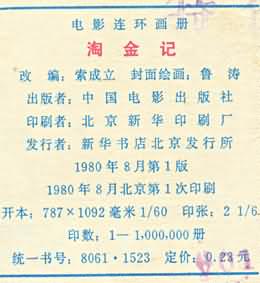 电影连环画册
淘金记
改 编：索成立 封面绘画：鲁 涛
出版者：中国电影出版社
印刷者：北京新华印刷厂
发行者：新华书店北京发行所
1980年8月第1版
1980年8月北京第1次印刷
开本：787×1092毫米1/60 印张：2 1/6
印数：1—1,000,000册
统一书号：8061·1523 定价：0.23元